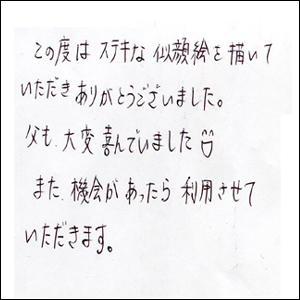 この度は ステキな 似顔絵を 描いて
いただき ありがとうございました。
父も、大変 喜んでいました
また、機会が あったら 利用させて
いただきます。